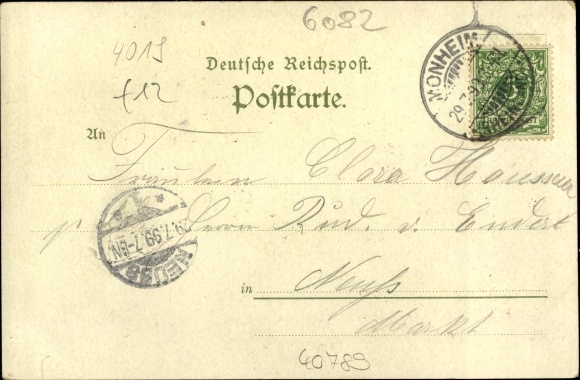 6082
4019
f12
Deutsche Reichspost.
Postkarte.
MONHEIM
29.7.
An
Fräulein Clara Haussen
p Herrn Rud. v. Endert
29.7.99.7-8N.
NEUSS
in Neuß
Markt
40789